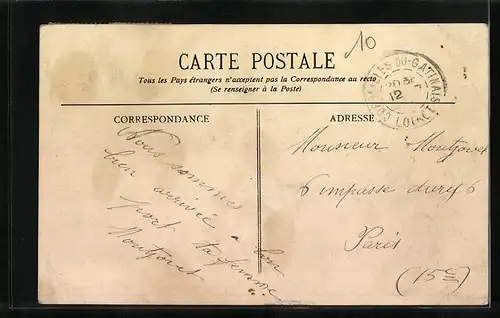 10
CARTE POSTALE
Tous les Pays étrangers n'acceptent pas la Correspondance au recto
(Se renseigner à la Poste)
DU-GATINAIS
12
LOIRET
CORRESPONDANCE
Nous sommes
bien arrivée à bon
port ta femme
Montjovet
ADRESSE
Monsieur Montjovet
6 impasse 6
Paris
(15e)